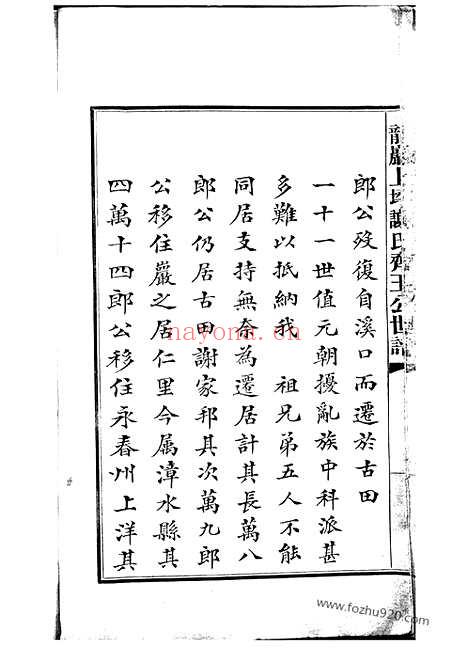 郎公歿復自溪口而遷於古田
一十一世值元朝擾亂族中科派甚
多難以抵納我　祖兄弟五人不能
同居支持無奈為遷居計其長萬八
郎公仍居古田謝家邦其次萬九郎
公移住巖之居仁里今属漳水縣其
四萬十四郎公移住永春州上洋其
nayona.cn
www.fozhu920.com